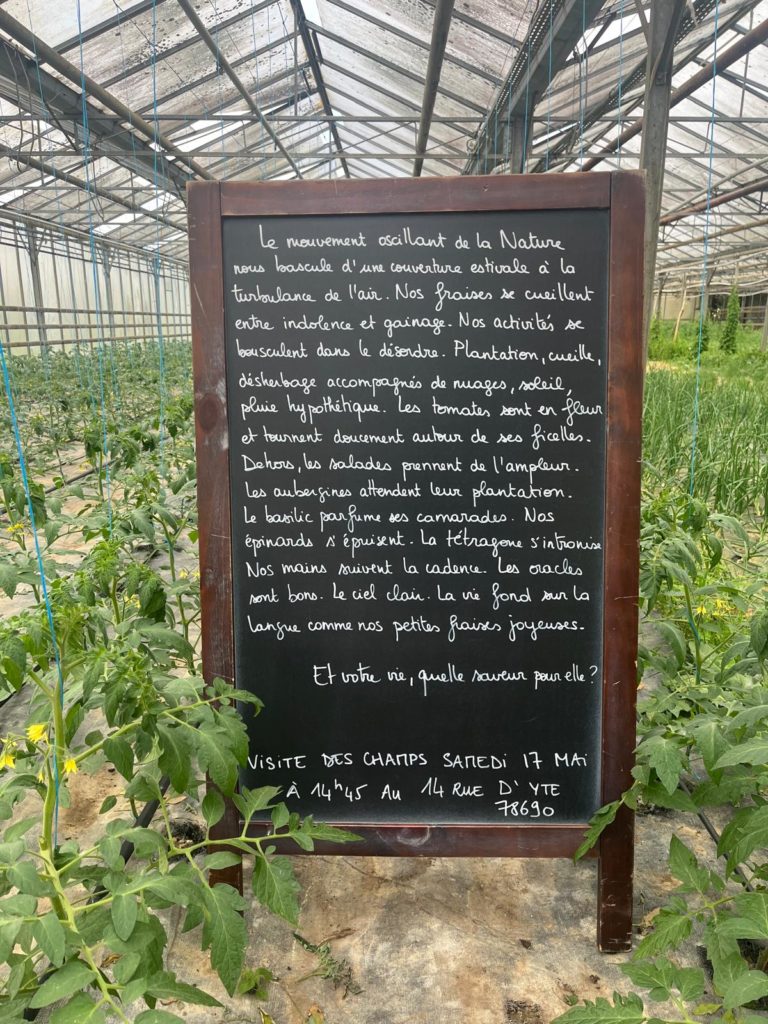 Le mouvement oscillant de la Nature
nous bascule d'une couverture estivale à la
turbulance de l'air. Nos fraises se cueillent
entre indolence et gainage. Nos activités se
bousculent dans le désordre. Plantation, cueille,
désherbage accompagnés de nuages, soleil,
pluie hypothétique. Les tomates sont en fleur
et tournent doucement autour de ses ficelles.
Dehors, les salades prennent de l'ampleur.
Les aubergines attendent leur plantation.
Le basilic parfume ses camarades. Nos
épinards s'épuisent. La tétragone s'intronise
Nos mains suivent la cadence. Les oracles
sont bons. Le ciel clair. La vie fond sur la
langue comme nos petites fraises joyeuses.
Et votre vie, quelle saveur pour elle ?
VISITE DES CHAMPS SAMEDI 17 MAi
À 14h45 AU 14 RUE D'YTE
78690